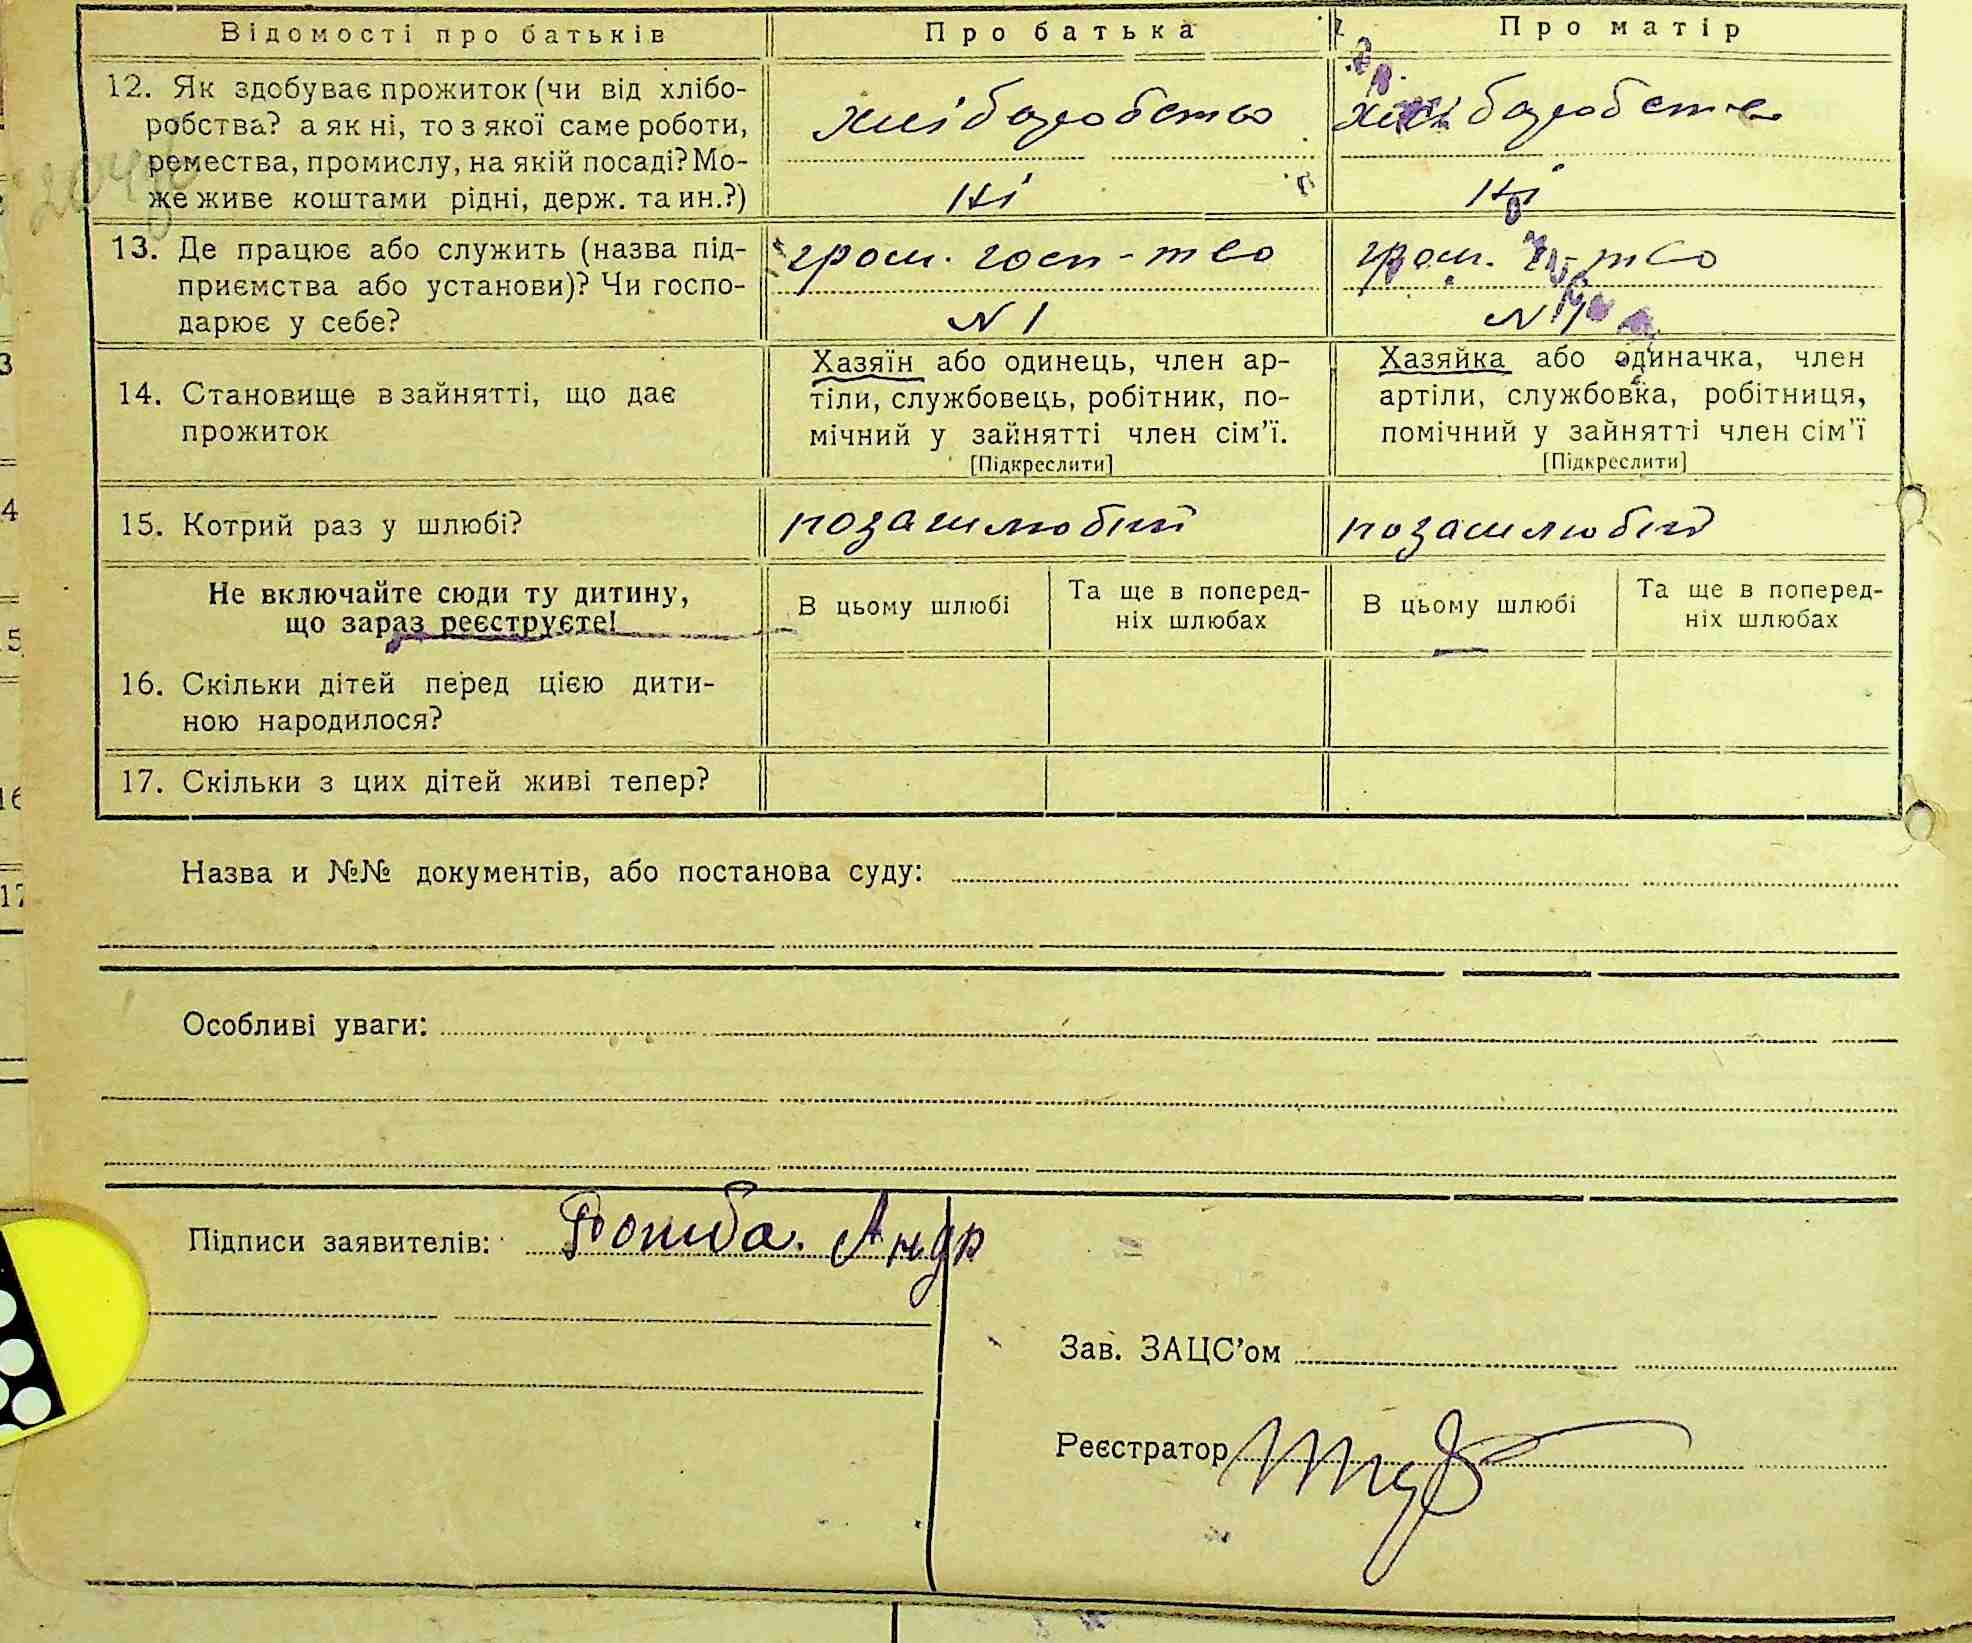 Відомості про батьків
Про батька
Про матір
12. Як здобуває прожиток (чи від хлібо-
робства? а як ні, то з якої саме роботи,
ремества, промислу, на якій посаді? Мо-
же живе коштами рідні, держ. та ин.?)
хліборобство
ні
хліборобство
ні
13. Де працює або служить (назва під-
приємства або установи)? Чи госпо-
дарює у себе?
гром. госп-тво
N 1
гром. тво
N 1
14. Становище в зайнятті, що дає
прожиток
Хазяїн або одинець, член ар-
тіли, службовець, робітник, по-
мічний у зайнятті член сім'ї.
[Підкреслити]
Хазяйка або одиначка, член
артіли, службовка, робітниця,
помічний у зайнятті член сім'ї
[Підкреслити]
15. Котрий раз у шлюбі?
позашлюбній
позашлюбній
Не включайте сюди ту дитину,
що зараз реєструєте!
В цьому шлюбі
Та ще в поперед-
ніх шлюбах
В цьому шлюбі
Та ще в поперед-
ніх шлюбах
16. Скільки дітей перед цією дити-
ною народилося?
17. Скільки з цих дітей живі тепер?
Назва и №№ документів, або постанова суду:
Особливі уваги:
Підписи заявителів: Андр
Зав. ЗАЦС'ом
Реєстратор
3
4
5
16
17